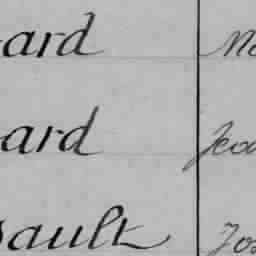 ard Mo
ard Jea
sault Jos